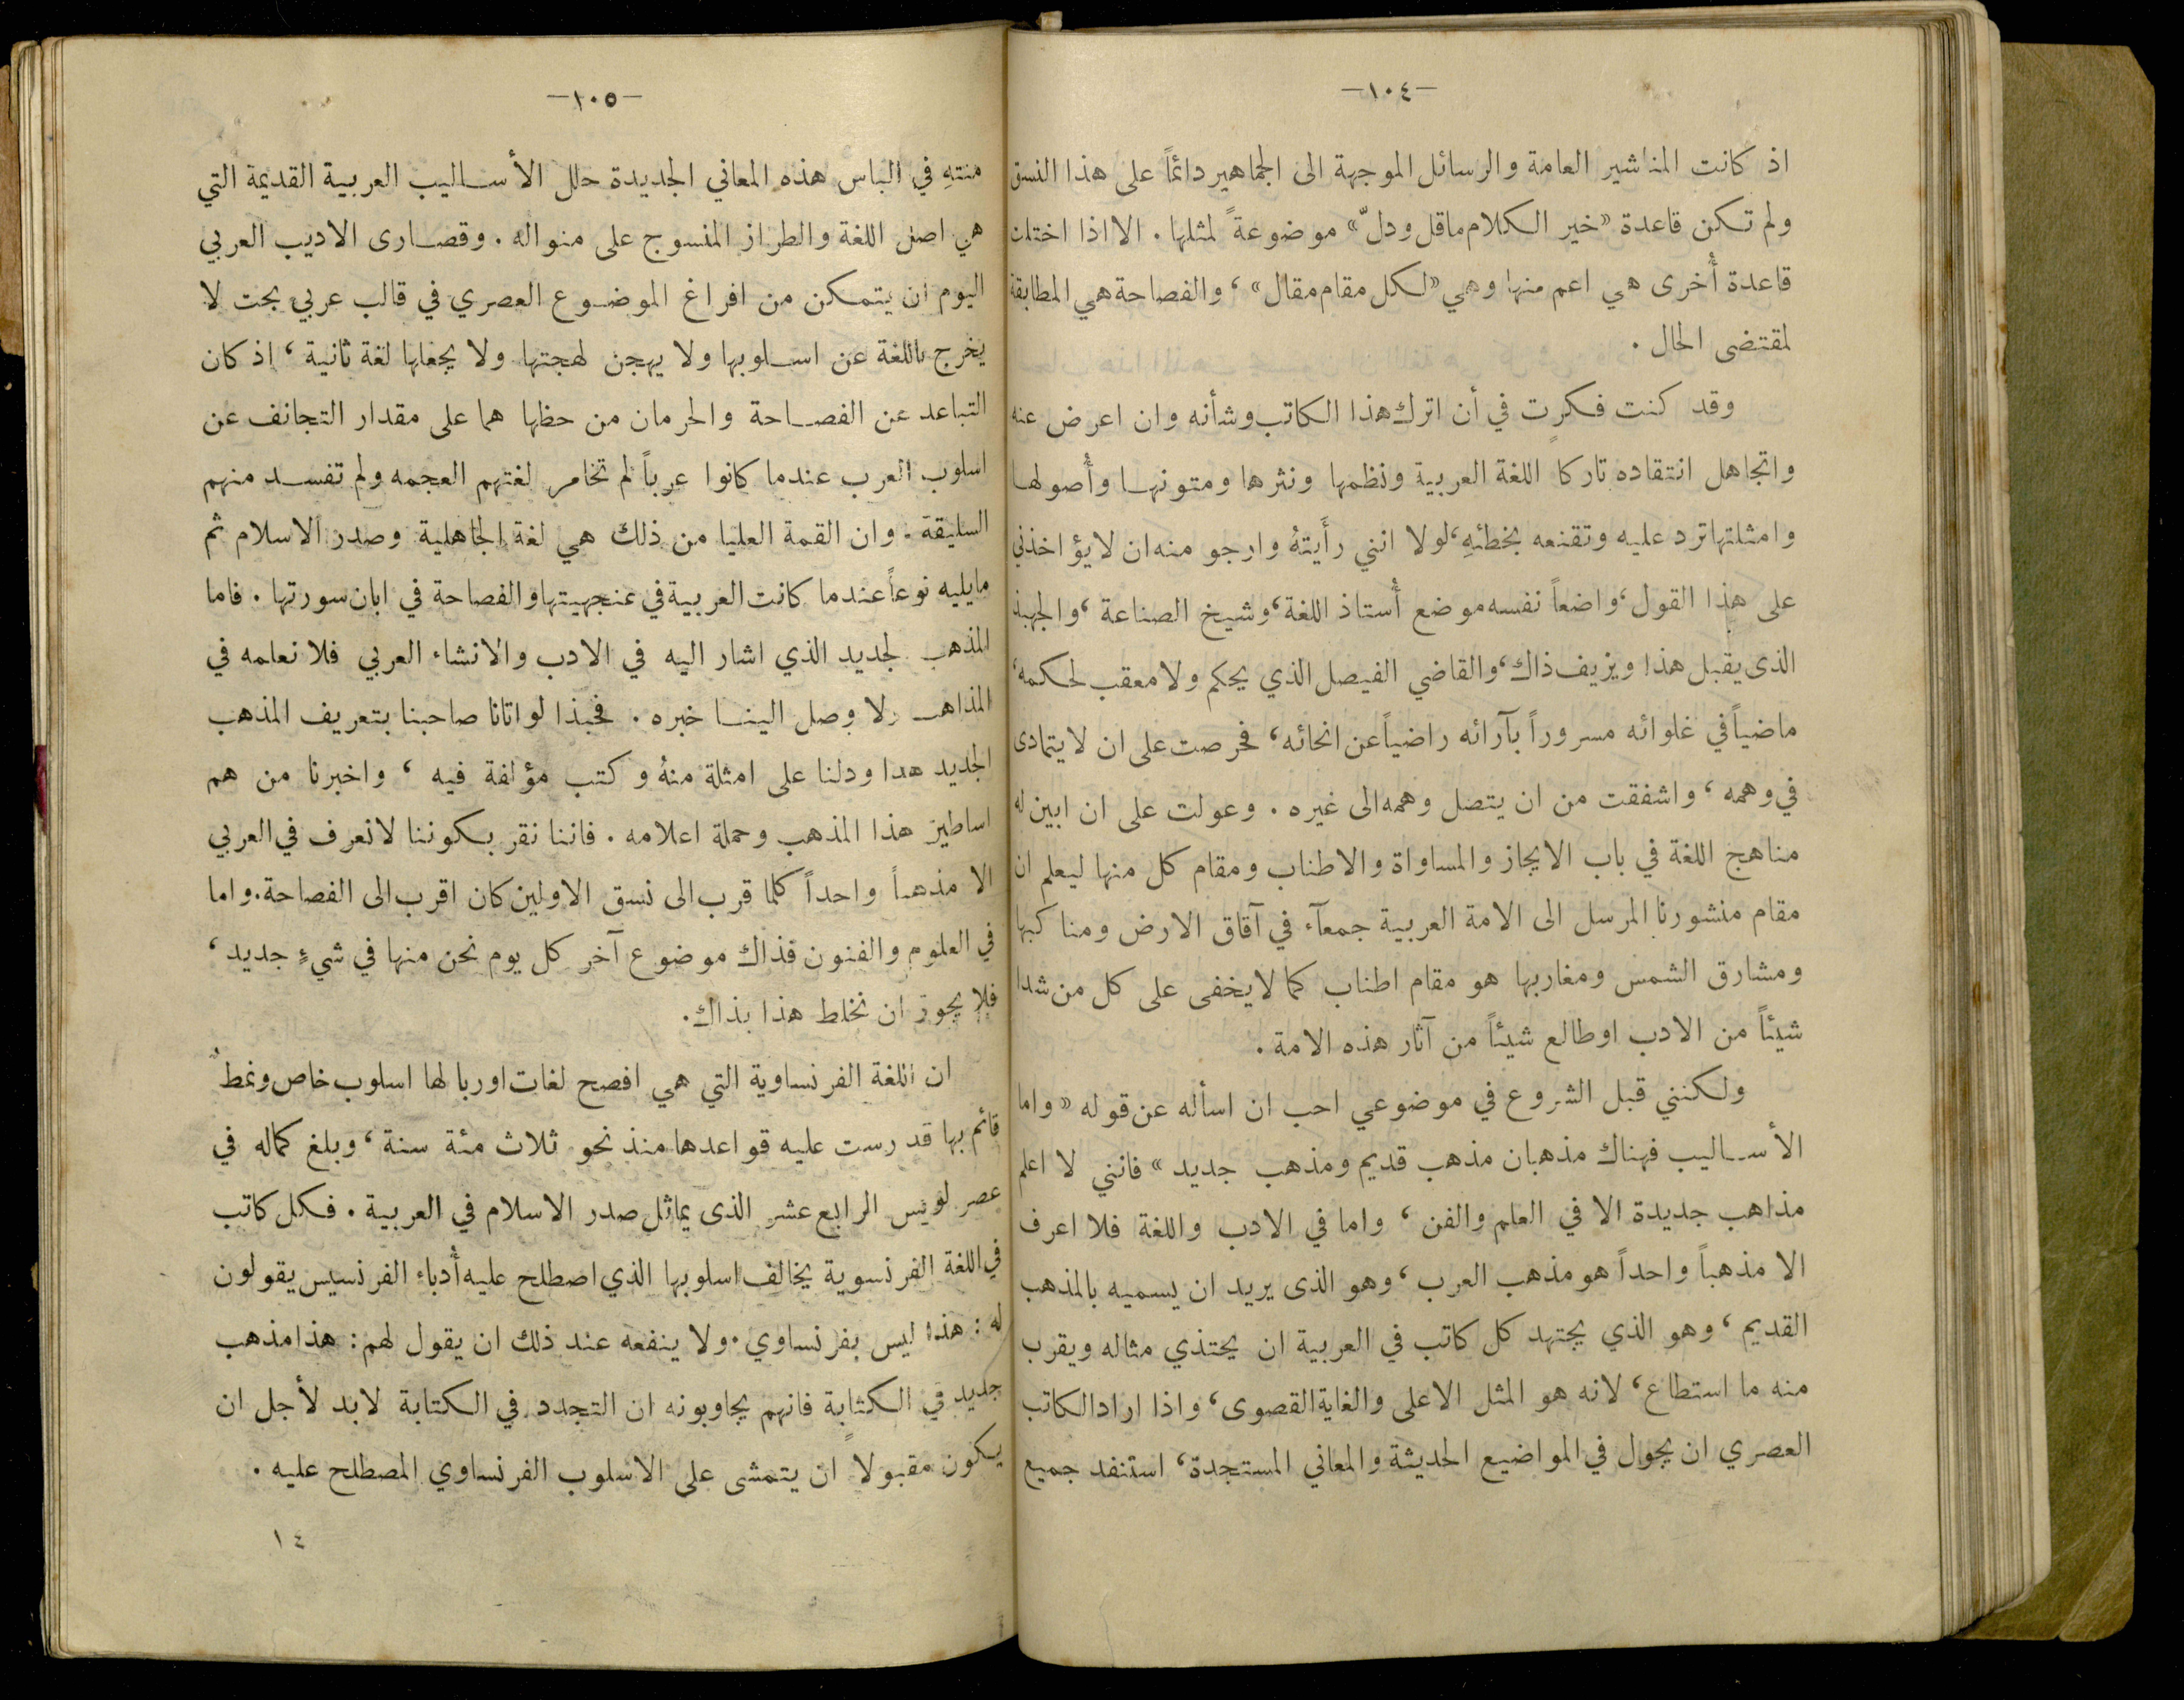 —١٠٤—
اذ كانت المناشير العامة والرسائل الموجهة الى الجماهير دائماً على هذا النسق
ولم تكن قاعدة «خير الكلام ماقل ودلّ» موضوعةً لمثلها . الا اذا اختلت
قاعدة أُخرى هي اعم منها وهي «لكل مقام مقال» ، والفصاحة هي المطابقة
لمقتضى الحال .
وقد كنت فكرت في أن اترك هذا الكاتب وشأنه وان اعرض عنه
واتجاهل انتقاده تاركا اللغة العربية ونظمها ونثرها ومتونها وأُصولها
وامثلتها ترد عليه وتقنعه بخطئهِ، لولا انني رأَيتهُ وارجو منه ان لايؤاخذني
على هذا القول، واضعاً نفسه موضع أُستاذ اللغة، وشيخ الصناعة ، والجهبذ
الذى يقبل هذا ويزيف ذاك، والقاضي الفيصل الذي يحكم ولا معقب لحكمه،
ماضياً في غلوائه مسروراً بآرائه راضياً عن انحائه، فحرصت على ان لايتمادى
في وهمه ، واشفقت من ان يتصل وهمه الى غيره . وعولت على ان ابين له
مناهج اللغة في باب الايجاز والمساواة والاطناب ومقام كل منها ليعلم ان
مقام منشورنا المرسل الى الامة العربية جمعآء في آفاق الارض ومناكبها
ومشارق الشمس ومغاربها هو مقام اطناب كما لايخفى على كل من شدا
شيئاً من الادب او طالع شيئاً من آثار هذه الامة .
ولكنني قبل الشروع في موضوعي احب ان اسأله عن قوله « واما
الأساليب فهناك مذهبان مذهب قديم ومذهب جديد » فانني لا اعلم
مذاهب جديدة الا في العلم والفن ، واما في الادب واللغة فلا اعرف
الا مذهباً واحداً هو مذهب العرب ، وهو الذى يريد ان يسميه بالمذهب
القديم ، وهو الذي يجتهد كل كاتب في العربية ان يحتذي مثاله ويقرب
منه ما استطاع ، لانه هو المثل الاعلى والغاية القصوى، واذا اراد الكاتب
العصري ان يجول في المواضيع الحديثة والمعاني المستجدة، استنفد جميع
—١٠٥—
منتهِ في الباس هذه المعاني الجديدة حلل الأساليب العربية القديمة التي
هي اصل اللغة والطراز المنسوج على منواله . وقصارى الاديب العربي
اليوم ان يتمكن من افراغ الموضوع العصري في قالب عربي بحت لا
يخرج باللغة عن اسلوبها ولا يهجن لهجتها ولا يجعلها لغة ثانية ، اذ كان
التباعد عن الفصاحة والحرمان من حظها هما على مقدار التجانف عن
اسلوب العرب عندما كانوا عرباً لم تخامر لغتهم العجمه ولم تفسد منهم
السليقة . وان القمة العليا من ذلك هي لغة الجاهلية وصدر الاسلام ثم
مايليه نوعاً عندما كانت العربية في عنجهيتها والفصاحة في ابان سورتها . فاما
المذهب لجديد الذي اشار اليه في الادب والانشاء العربي فلا نعلمه في
المذاهب ولا وصل الينا خبره . فحبذا لو اتانا صاحبنا بتعريف المذهب
الجديد هذا ودلنا على امثلة منهُ وكتب مؤلفة فيه ، واخبرنا من هم
اساطين هذا المذهب وحملة اعلامه . فاننا نقر بكوننا لانعرف في العربي
الا مذهباً واحداً كلما قرب الى نسق الاولين كان اقرب الى الفصاحة. واما
في العلوم والفنون فذاك موضوع آخر كل يوم نحن منها في شيءٍ جديد ،
فلا يجوز ان نخلط هذا بذاك.
ان اللغة الفرنساوية التي هي افصح لغات اوربا لها اسلوب خاص ونمطٌ
قائم بها قد رست عليه قواعدها منذ نحو ثلاث مئة سنة ، وبلغ كماله في
عصر لويس الرابع عشر الذى يماثل صدر الاسلام في العربية . فكل كاتب
في اللغة الفرنسوية يخالف اسلوبها الذي اصطلح عليه أُدباء الفرنسيس يقولون
له : هذا ليس بفرنساوي . ولا ينفعه عند ذلك ان يقول لهم : هذا مذهب
جديد في الكتابة فانهم يجاوبونه ان التجدد في الكتابة لابد لأجل ان
يكون مقبولاً ان يتمشى على الاسلوب الفرنساوي المصطلح عليه .
١٤